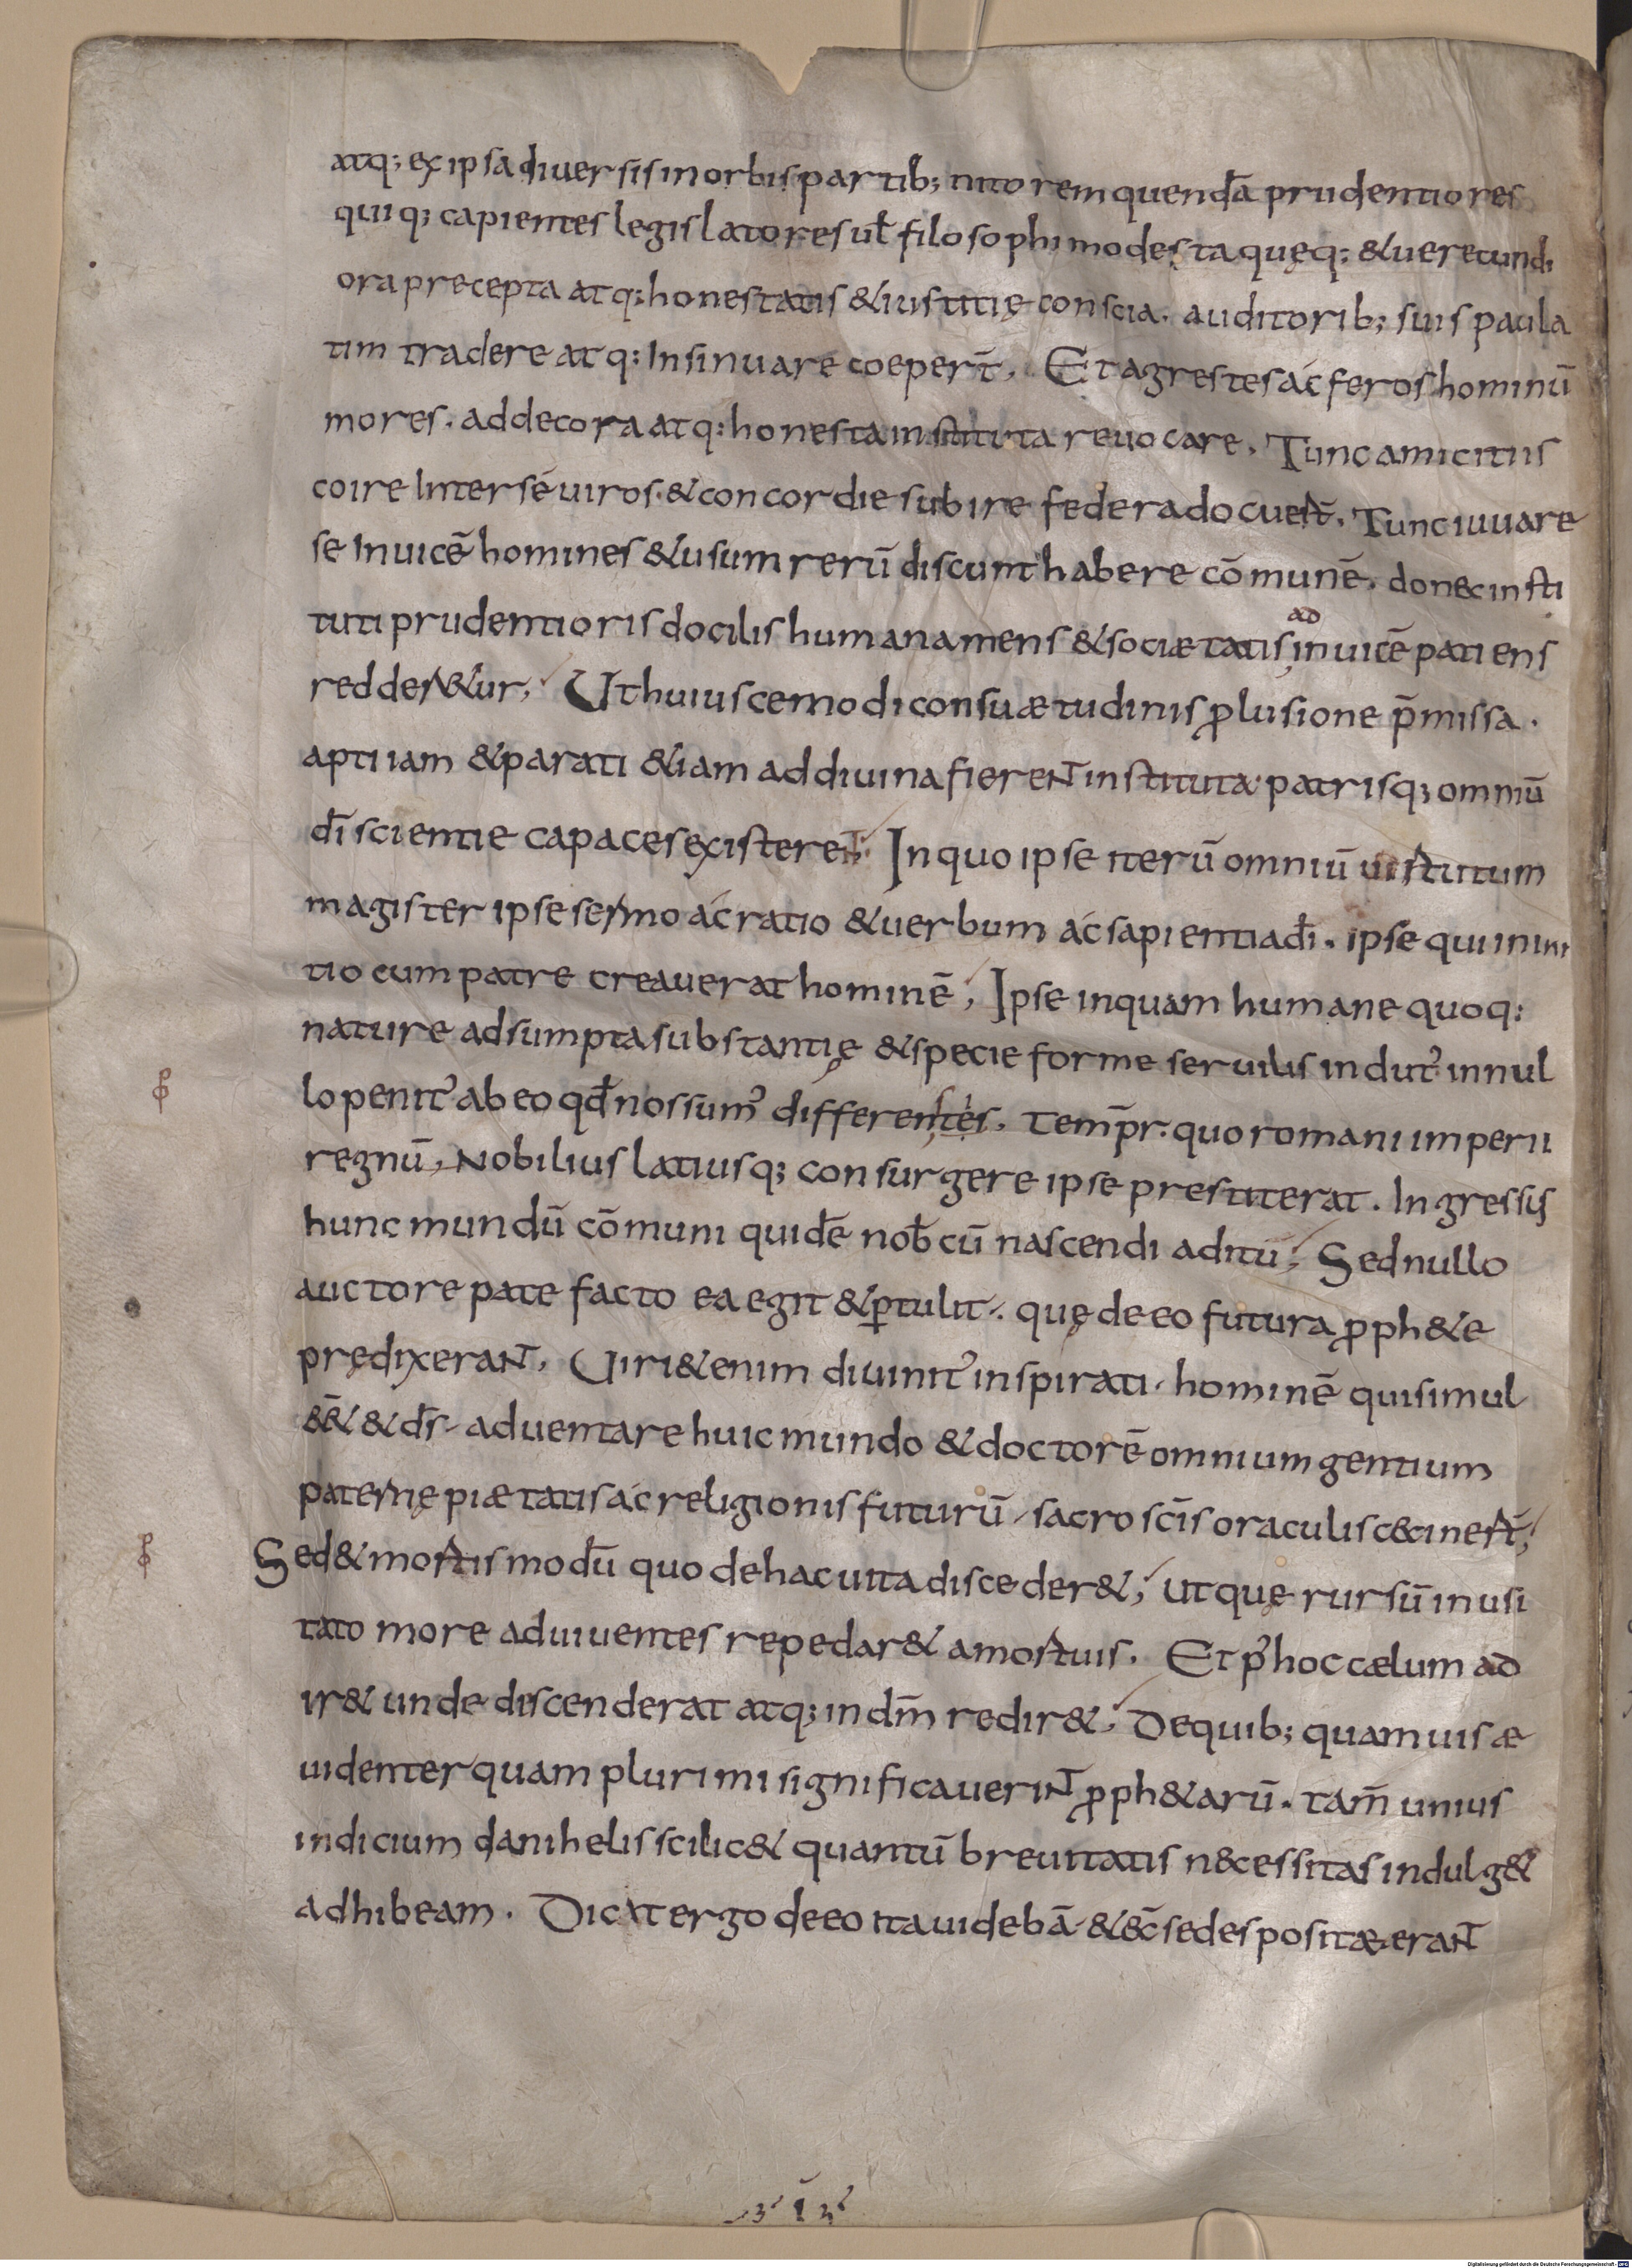 atq; ex ipsa diuersis in orbis partib; nitorem quendā prudentiores
quiq; capientes legislatores ul̄ filosophi modesta quęq; & uerecundi
ora precepta atq; honestatis & iustitię conscia. auditorib; suis paula
tim tradere atq; Insinuare coeper̄t. Et agrestes ác feros hominū
mores. ad decora atq; honesta instituta reuocare. Tunc amicitiis
coire Inter sé uiros. & concordie subire federa docuer̄t. Tunc iuuare
se Inuicē homines & usum rerū discunt habere cōmunē. donec insti
tuti prudentioris docilis humana mens & sociætatis
ad
inuicē patiens
redder&ur, Ut huiuscemodi consuætudinis ꝓlusione p̄missa.
apti iam & parati &iam ad diuina fierent instituta patrisq; omniū
dī scientie capaces existerent. In quo ipse iterū omniū uirtutum
magister ipse sermo ác ratio & uerbum ác sapientia dī. ipse qui in ini
tio cum patre creauerat hominē, Ipse inquam humane quoq;
nature adsumpta substantię & specie forme seruilis indut᾿ in nul
lo penit᾿ ab eo qđ nos sum᾿ differentes. temp̄r. quo romani imperii
regnū, Nobilius latiusq; consurgere ipse prestiterat. Ingressus
hunc mundū cōmuni quidē nob̄cū nascendi aditū, Sed nullo
auctore pate facto ea egit & ꝑtulit. quę de eo futura ꝓph&e
prędixerant. Uiri &enim diuinit᾿ inspirati. hominē qui simul
&& & d̄s aduentare huic mundo & doctorē omnium gentium
paternę piætatis ác religionis futurū, sacro sc̄is oraculis ceciner̄t,
Sed & mortis modū quo de hac uita disceder&, ut quę rursū inusi
tato more ad uiuentes repedar& a mortuis. Et p᾿ hoc cælum ad
ir& unde discenderat atq; in dm̄ redir&, De quib; quamuis æ
uidenter quam plurimi significauerint ꝓph&arū. tam̄ unius
indicium danihelis scilic& quantū breuitatis necessitas indulg&
adhibeam. Dicit ergo de eo ita uidebā & ecc̄ sedes positæ erant